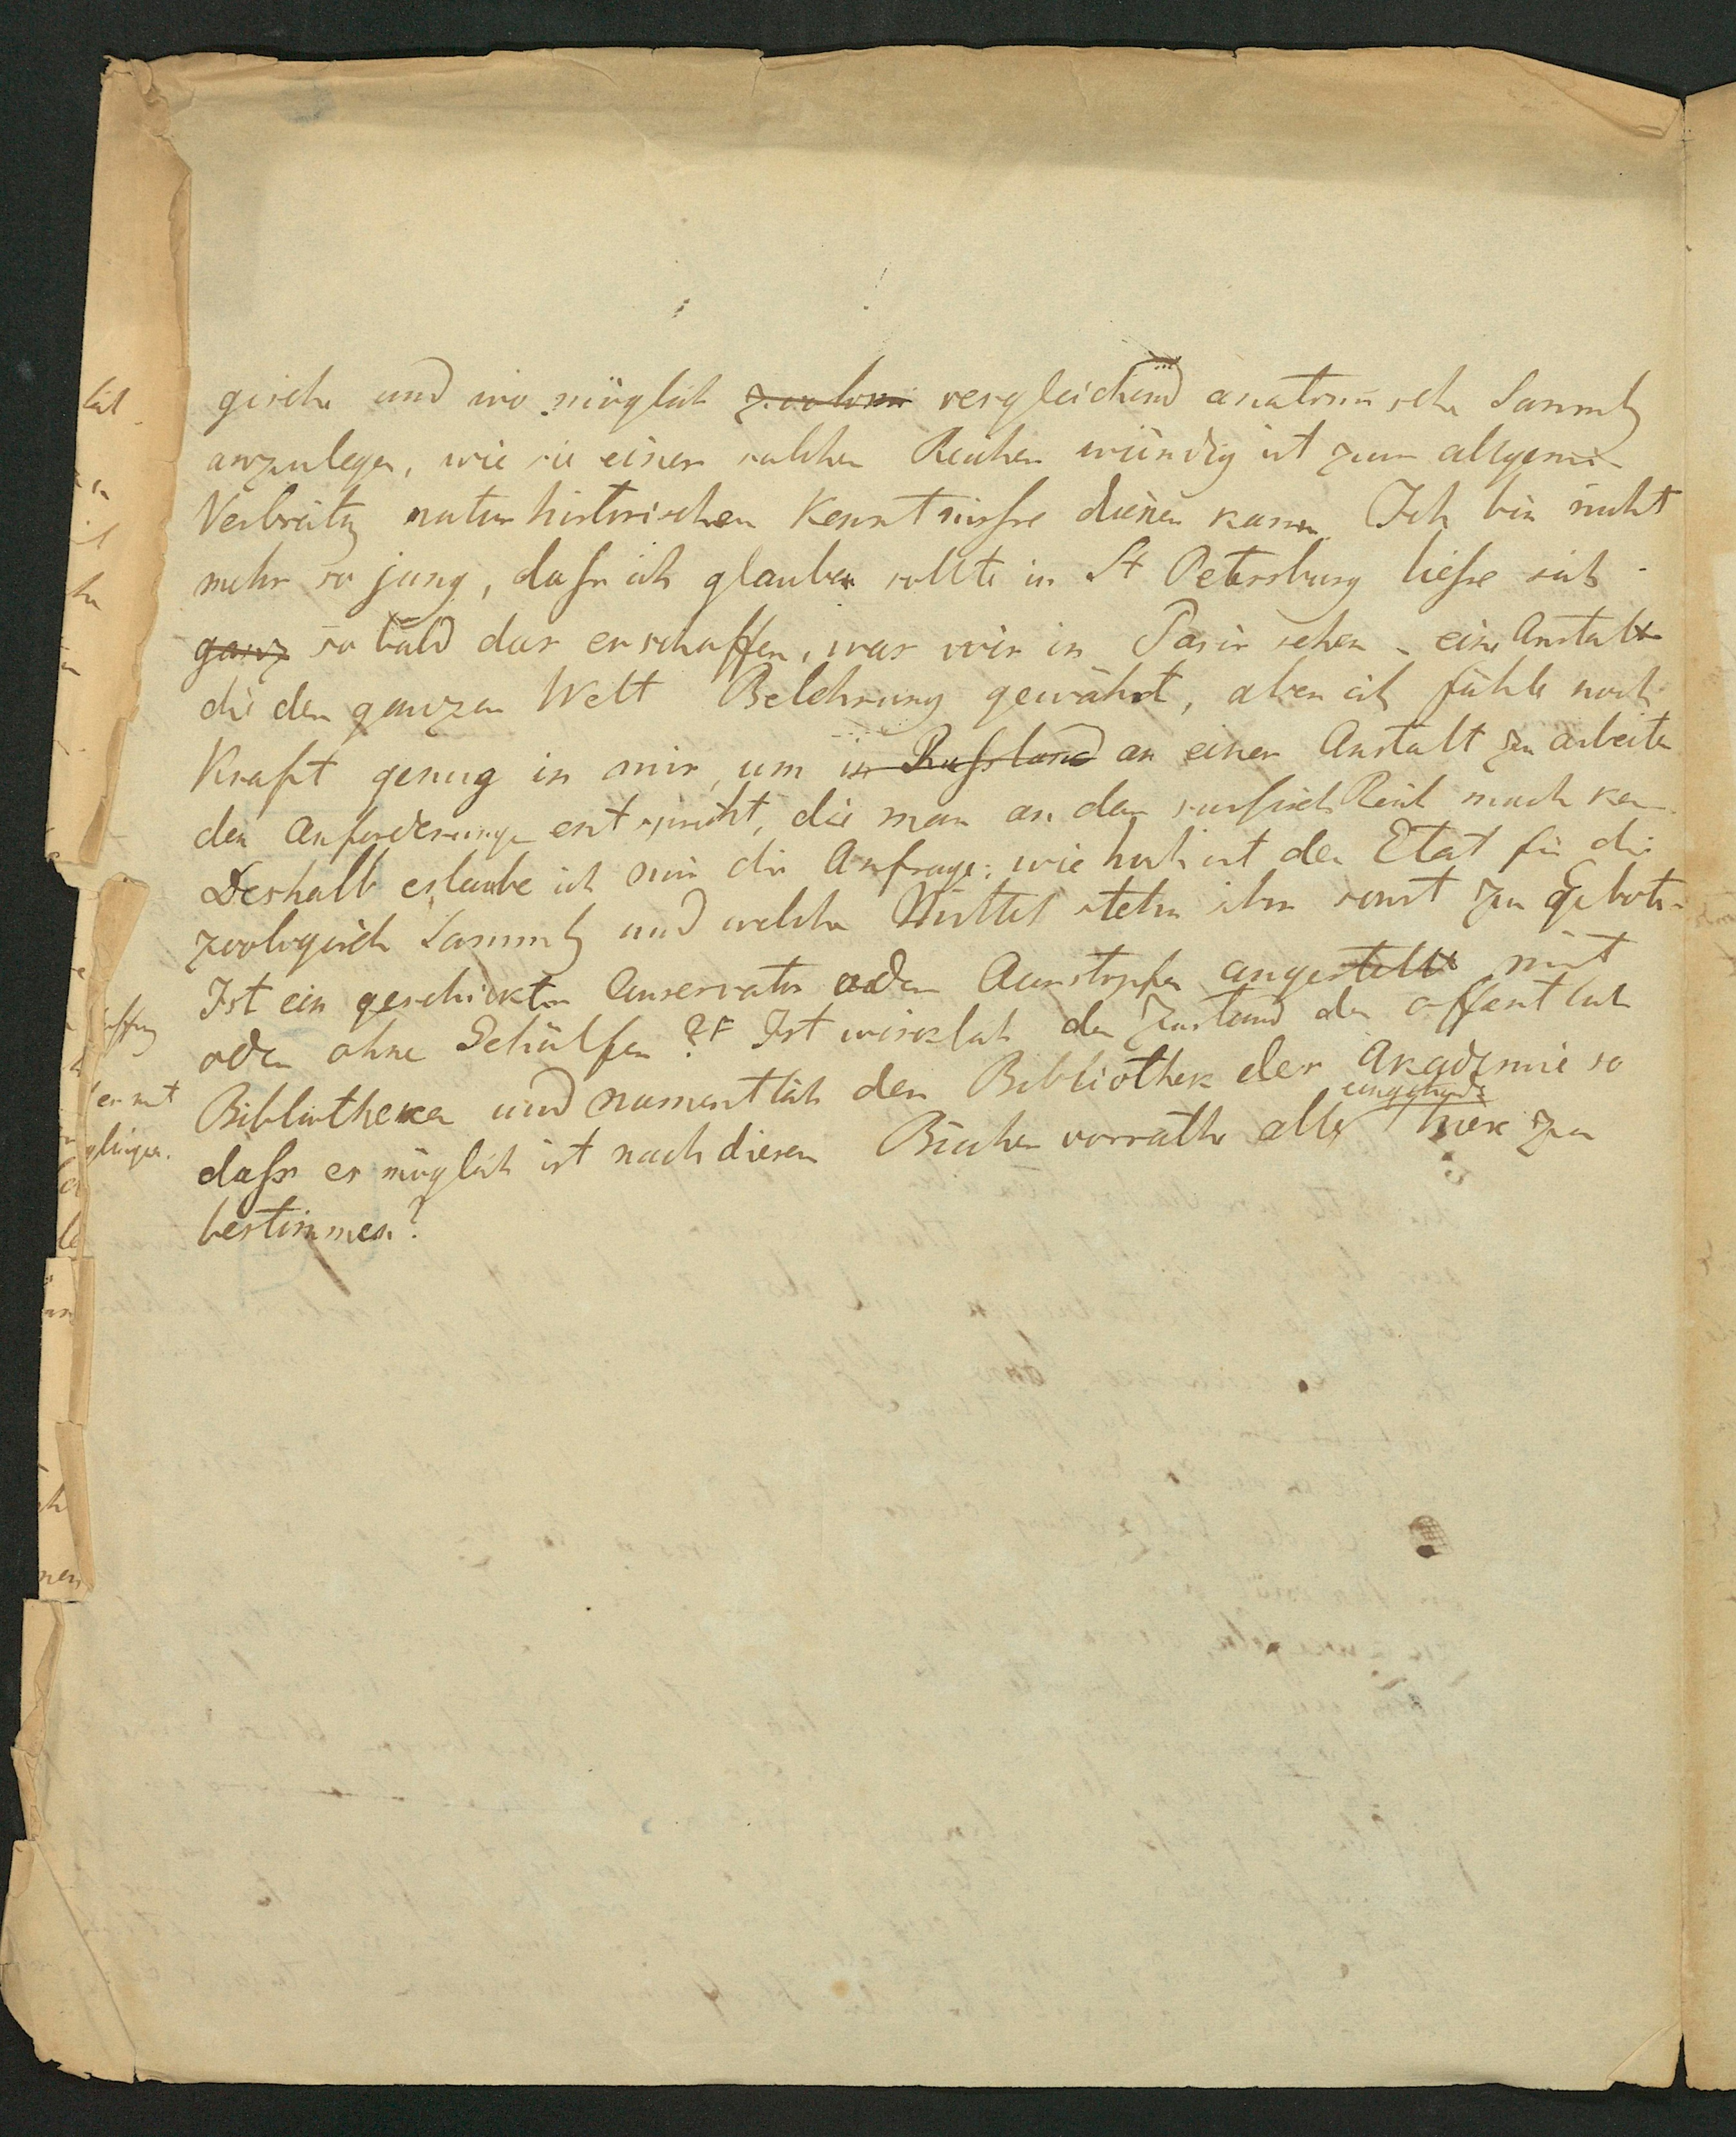 gische und wo möglich zootom vergleichend anatomische Samml
anzulegen, wie sie eines solchen Reiches würdig ist zum allgemein
Verbreitg naturhistorischen Kenntnisse dienen kann. Ich bin nicht
mehr so jung, dass ich glauben sollte in St Petersburg liesse sich
ganz so bald das erschaffen, was wir in Paris sehen – eine Anstalt
die der ganzen Welt Belehrung gewährt, aber ich fühle noch
Kraft genug in mir, um in Russland an einer Anstalt zu arbeiten
den Anforderungen entspricht, die man an das russisch Reich mach kan
Deshalb erlaube ich mir die Anfrage: wie hoch ist der Etat für die
zoologisch Samml und welche Mittel stehn ihm sonst zu Gebote
Ist ein geschickter Conservator oder Ausstopfer angestellt mit
oder ohne Gehülfen? Ist wirklich der Zustand der öffentlich
Bibliotheken und namentlich der Bibliothek der Akademie so
dass es möglich ist nach diesem Büchervorrathe alles eingehende hier zu
bestimmen?